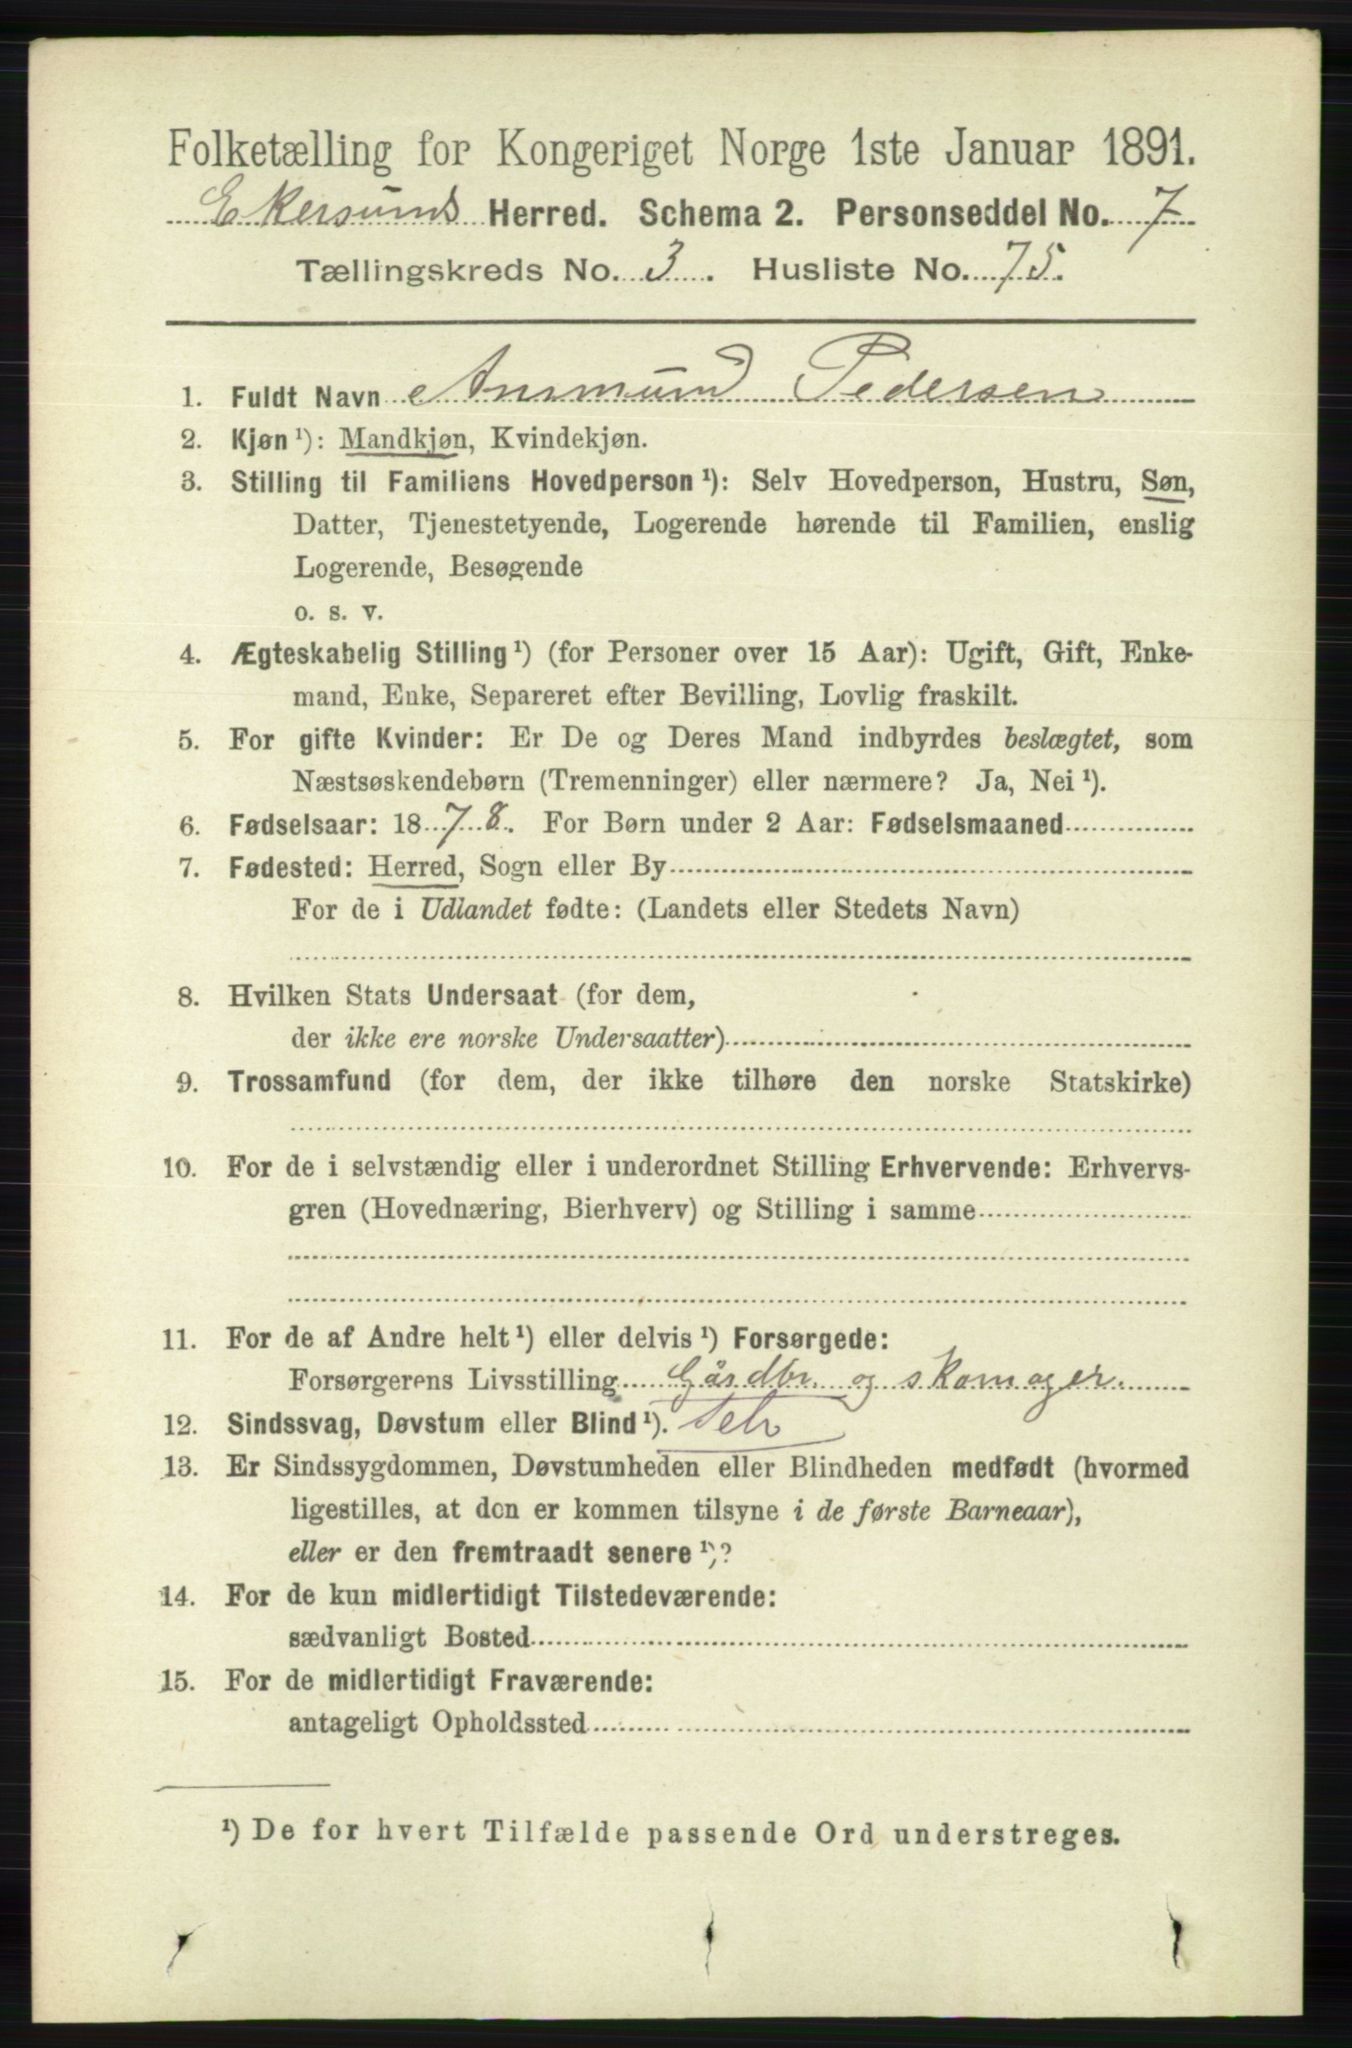 Folketælling for Kongeriget Norge 1ste Januar 1891.
Ekersunds Herred. Schema 2. Personseddel No. 7
Tællingskreds No. 3. Husliste No. 75.
1. Fuldt Navn Aasmund Pedersen
2. Kjøn ¹): Mandkjøn, Kvindekjøn.
3. Stilling til Familiens Hovedperson ¹): Selv Hovedperson, Hustru, Søn,
Datter, Tjenestetyende, Logerende hørende til Familien, enslig
Logerende, Besøgende
o. s. v.
4. Ægteskabelig Stilling ¹) (for Personer over 15 Aar): Ugift, Gift, Enke-
mand, Enke, Separeret efter Bevilling, Lovlig fraskilt.
5. For gifte Kvinder: Er De og Deres Mand indbyrdes beslægtet, som
Næstsøskendebørn (Tremenninger) eller nærmere? Ja, Nei ¹).
6. Fødselsaar: 1878. For Børn under 2 Aar: Fødselsmaaned
7. Fødested: Herred, Sogn eller By
For de i Udlandet fødte: (Landets eller Stedets Navn)
8. Hvilken Stats Undersaat (for dem,
der ikke ere norske Undersaatter)
9. Trossamfund (for dem, der ikke tilhøre den norske Statskirke)
10. For de i selvstændig eller i underordnet Stilling Erhvervende: Erhvervs-
gren (Hovednæring, Bierhverv) og Stilling i samme
11. For de af Andre helt ¹) eller delvis ¹) Forsørgede:
Forsørgerens Livsstilling Gårdbr. og skomager.
12. Sindssvag, Døvstum eller Blind ¹).
13. Er Sindssygdommen, Døvstumheden eller Blindheden medfødt (hvormed
ligestilles, at den er kommen tilsyne i de første Barneaar),
eller er den fremtraadt senere ¹)?
14. For de kun midlertidigt Tilstedeværende:
sædvanligt Bosted
15. For de midlertidigt Fraværende:
antageligt Opholdssted
¹) De for hvert Tilfælde passende Ord understreges.